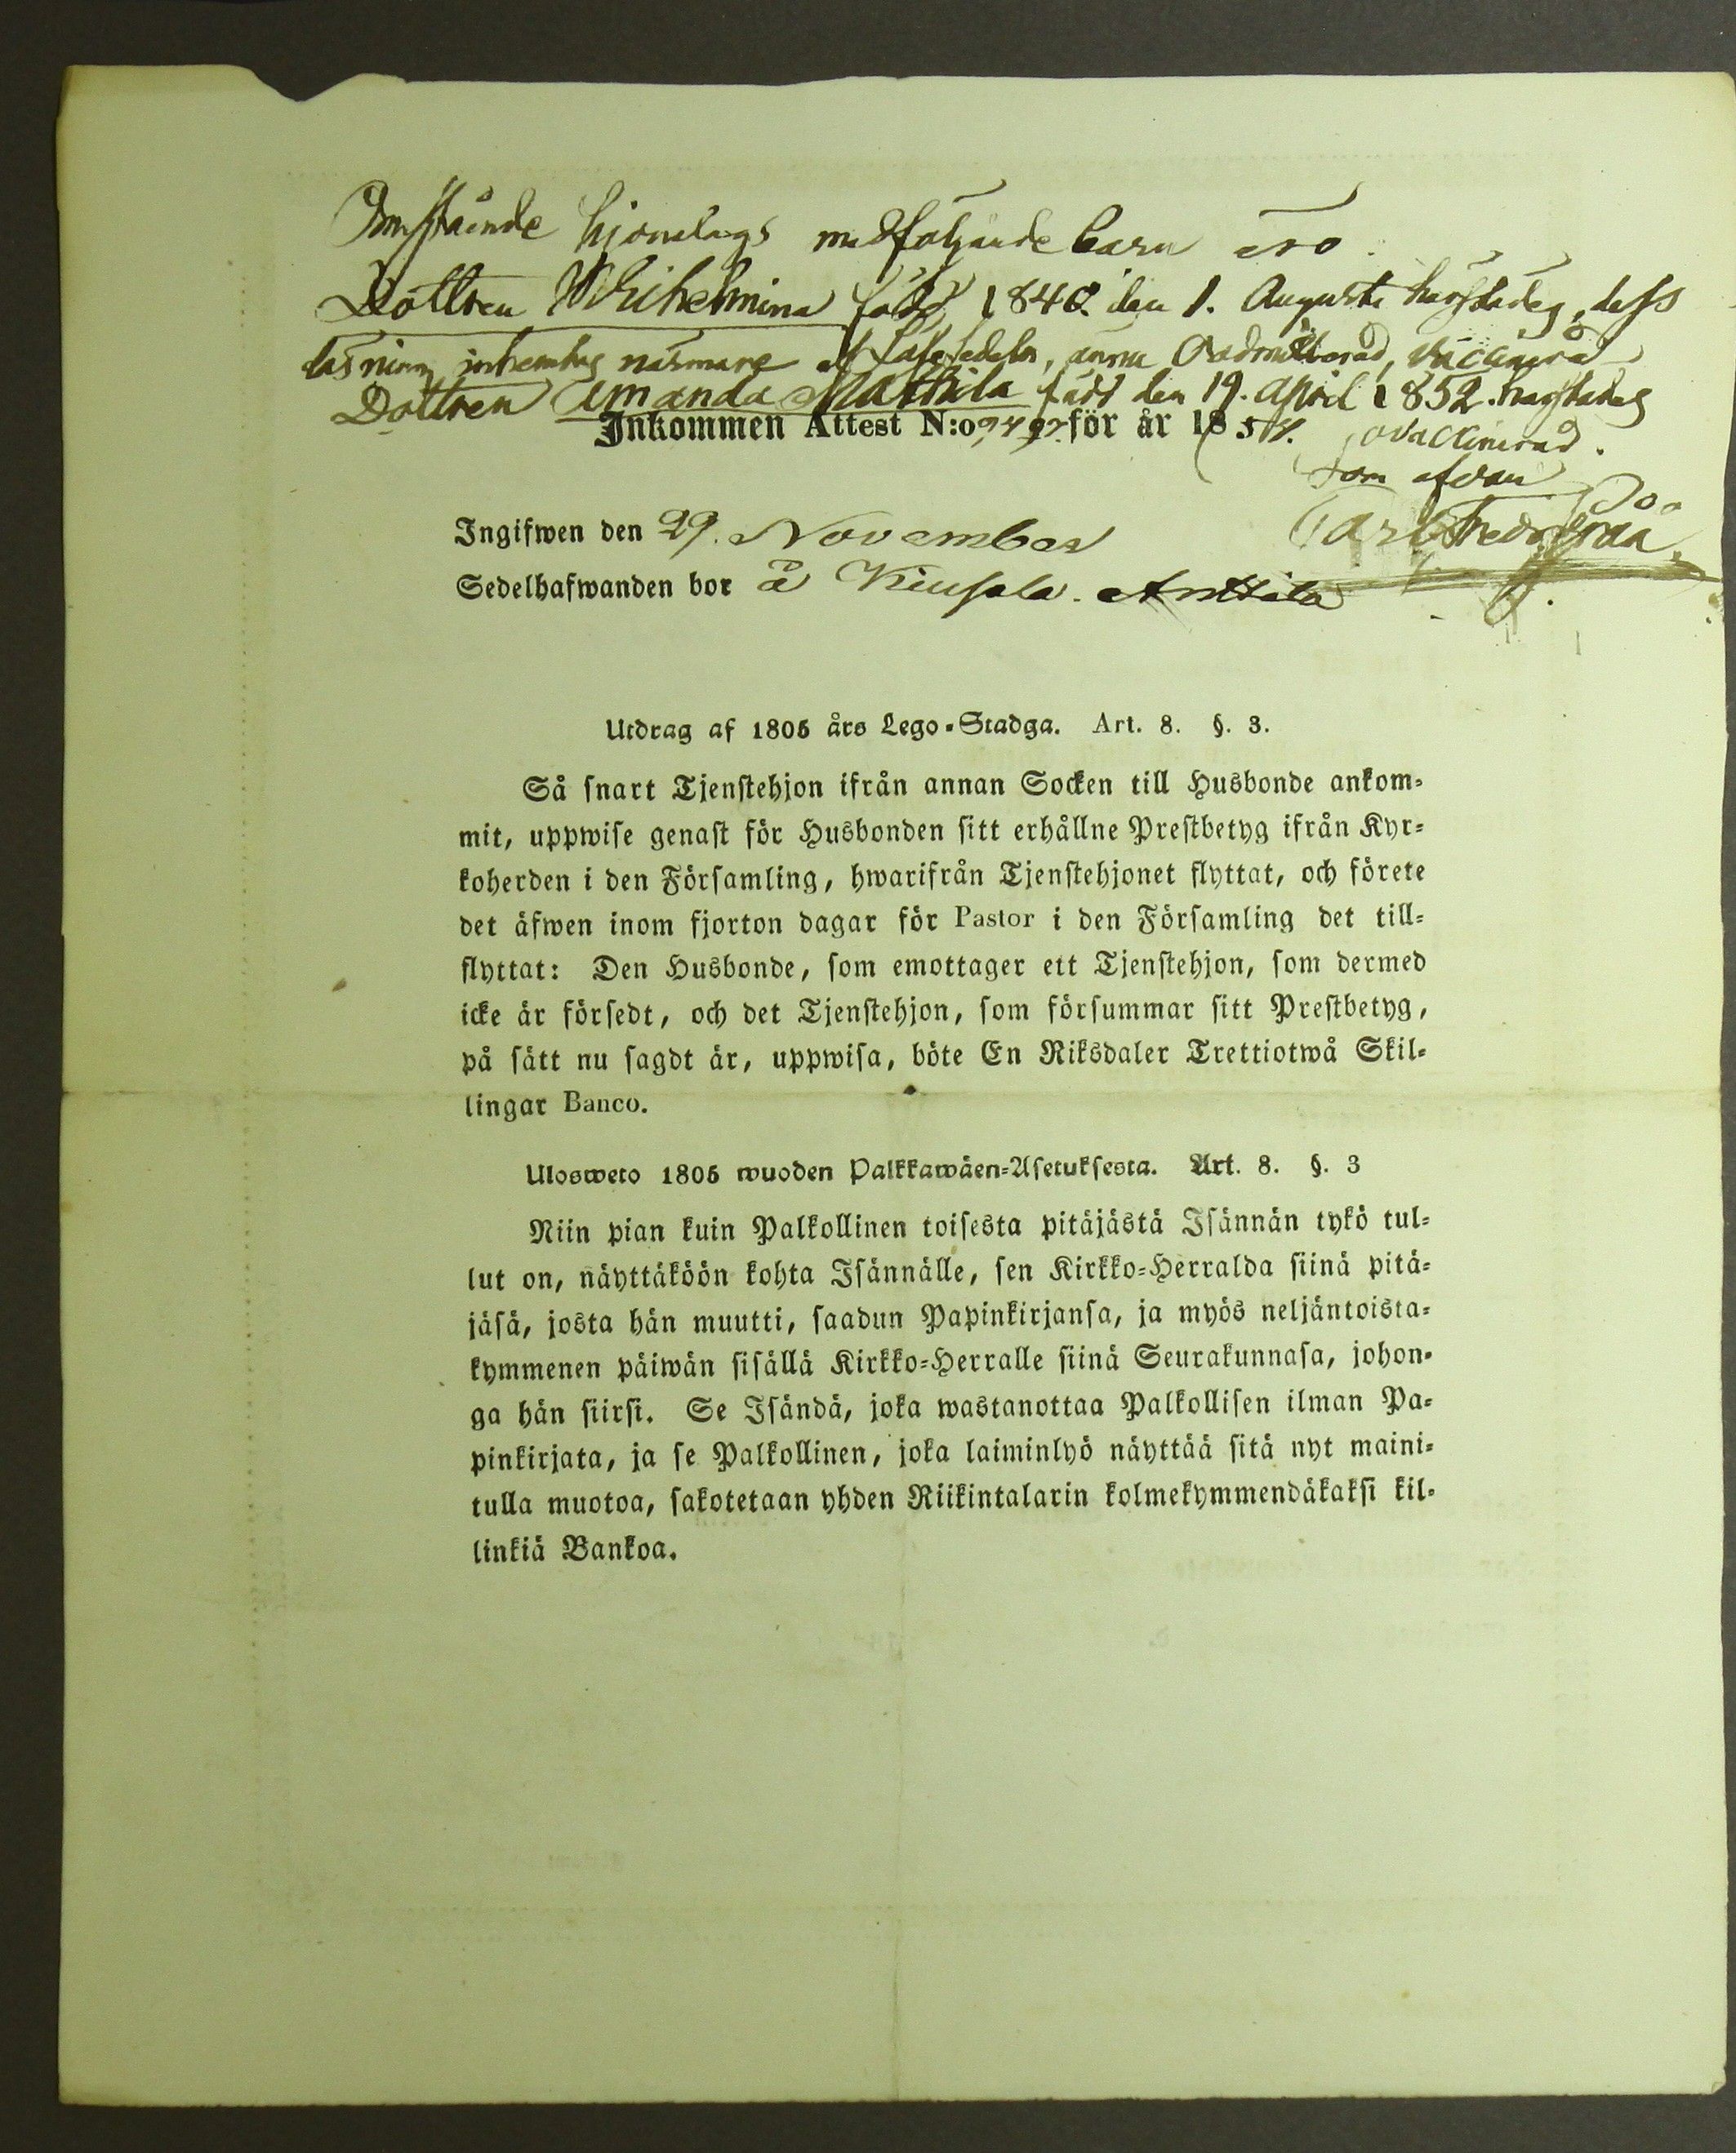 Omstående hjonelags medföljande barn äro
Dottren Wilhelmina född 1840 den 1. Augusti härstädes, dess
läsning inhemtas närmare af läsesedeln, ännu oadmitterad, vaccinerad
Dottren Amanda Mathilda född den 19. April 1852. härstädes
Inkommen Attest N:o för år 1854. ovaccinerad.
som ofvan
Ingifwen den 29. November Carl Fredr.
Sedelhafwanden bor å Anttila
Utdrag af 1805 års Lego-Stadga. Art. 8. §. 3.
Så snart Tjenstehjon ifrån annan Socken till Husbonde ankom-
mit, uppwise genast för Husbonden sitt erhållne Prestbetyg ifrån Kyr-
koherden i den Församling, hwarifrån Tjenstehjonet flyttat, och förete
det äfwen inom fjorton dagar för Pastor i den Församling det till-
flyttat: Den Husbonde, som emottager ett Tjenstehjon, som dermed
icke är försedt, och det Tjenstehjon, som försummar sitt Prestbetyg,
på sätt nu sagdt är, uppwisa, böte En Riksdaler Trettiotwå Skil-
lingar Banco.
Ulosweto 1805 wuoden Palkkawäen-Asetuksesta. Art. 8. §. 3
Niin pian kuin Palkollinen toisesta pitäjästä Isännän tykö tul-
lut on, näyttäköön kohta Isännälle, sen Kirkko-Herralda siinä pitä-
jäsä, josta hän muutti, saadun Papinkirjansa, ja myös neljäntoista-
kymmenen päiwän sisällä Kirkko-Herralle siinä Seurakunnasa, johon-
ga hän siirsi. Se Isändä, joka wastanottaa Palkollisen ilman Pa-
pinkirjata, ja se Palkollinen, joka laiminlyö näyttää sitä nyt maini-
tulla muotoa, sakotetaan yhden Riikintalarin kolmekymmendäkaksi kil-
linkiä Bankoa.